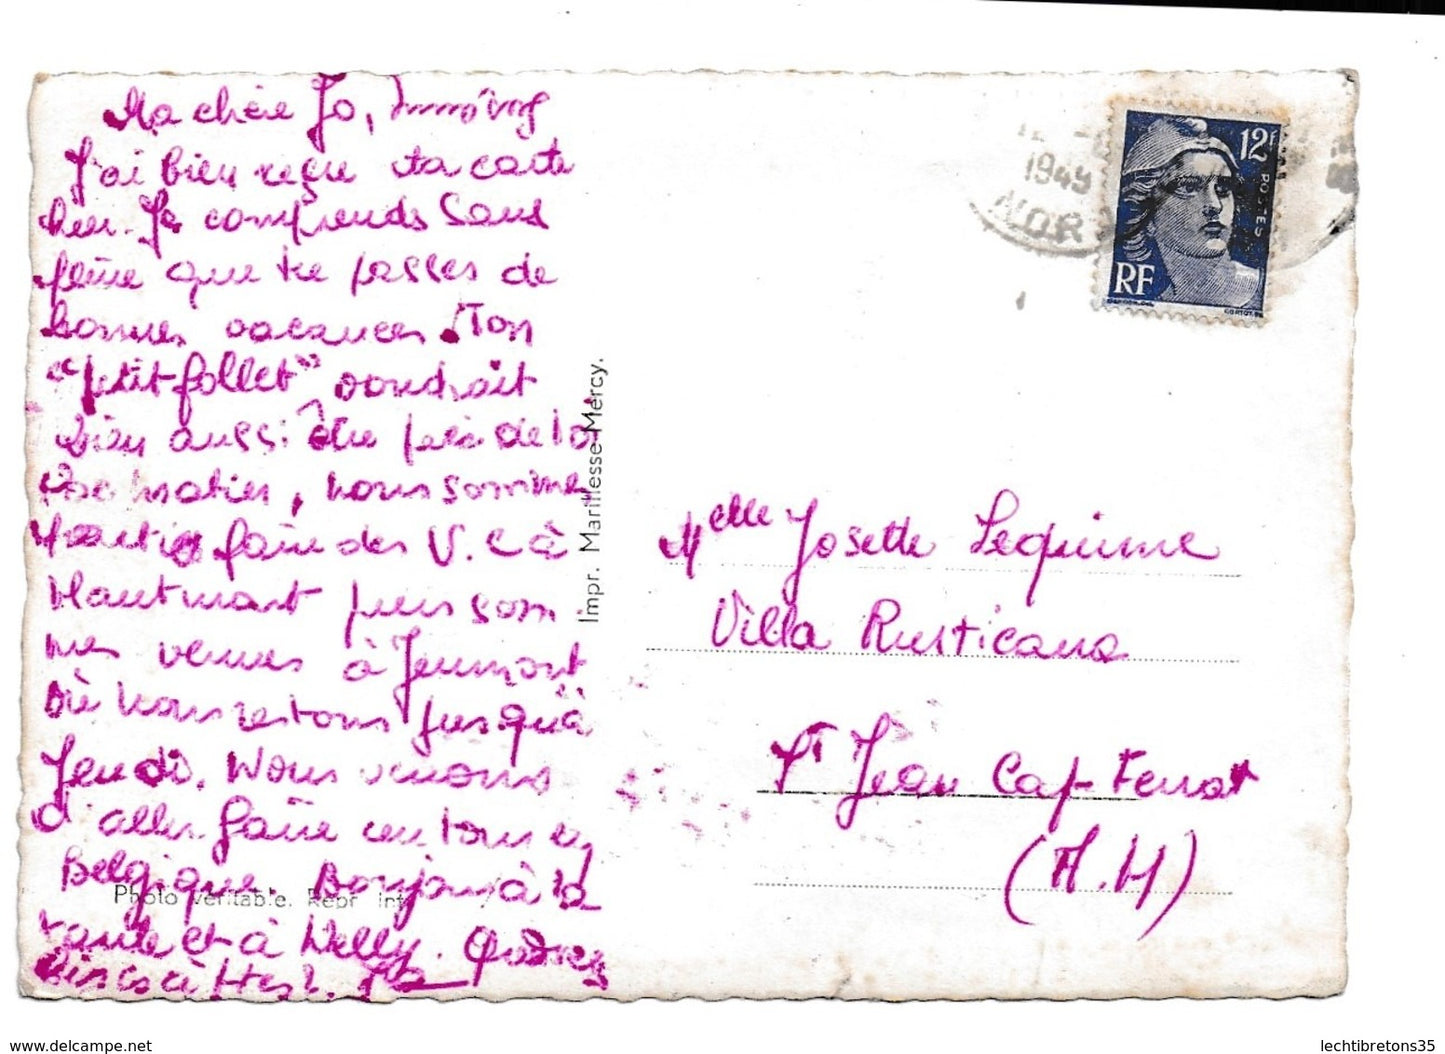 Ma chère Jo,
J'ai bien reçue ta carte
hier. Je comprends sans
peine que tu passes de
bonnes vacances. Ton
"petit follet" voudrait
bien aussi être près de toi
Ce matin, nous sommes
partis faire des V.C à
Hautmont puis som
mes venues à Jeumont
où nous restons jusqu'à
Jeudi. Nous venons
d'aller faire un tour en
Belgique. Bonjour à ta
tante et à Nelly.
Photo véritable. Repr. int
Impr. Marillesse-Mercy.
1949
NOR
12F
POSTES
RF
Melle Josette Lequime
Villa Rusticana
St Jean Cap-Ferrat
(A.M)
www.delcampe.net
lechtibretons35